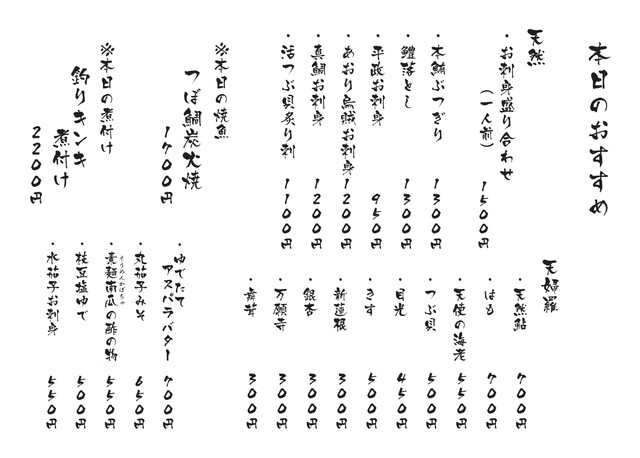 本日のおすすめ
天然
・お刺身盛り合わせ
(一人前)
1500円
・本鮪ぶつぎり 1300円
・鱧落とし 1300円
・平政お刺身 950円
・あおり烏賊お刺身 1200円
・真鯛お刺身 1200円
・活つぶ貝炙り刺 1100円
※本日の焼魚
つぼ鯛炭火焼
1700円
※本日の煮付け
釣りキンキ
煮付け
2200円
天婦羅
・天然鮎 700円
・はも 700円
・天使の海老 550円
・つぶ貝 500円
・目光 450円
・きす 500円
・新蓮根 300円
・銀杏 300円
・万願寺 300円
・舞茸 300円
・ゆでたて
アスパラバター 700円
・丸茄子みそ 650円
・素麺南瓜の酢の物 550円
そうめんかぼちゃ
・枝豆塩ゆで 500円
・水茄子お刺身 550円